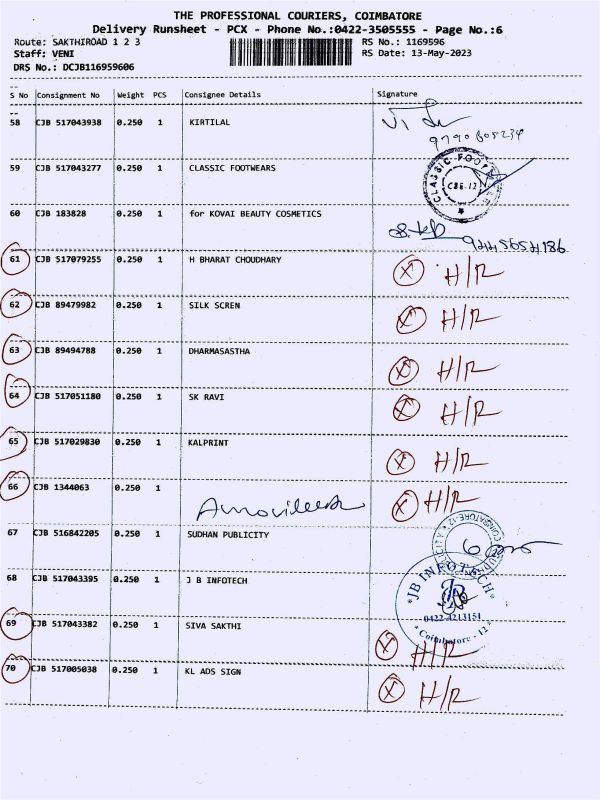 THE PROFESSIONAL COURIERS, COIMBATORE
Delivery Runsheet - PCX - Phone No.:0422-3505555 - Page No.:6
Route: SAKTHIROAD 1 2 3 RS No.: 1169596
Staff: VENI RS Date: 13-May-2023
DRS No.: DCJB116959606
S No Consignment No Weight PCS Consignee Details Signature
58 CJB 517043938 0.250 1 KIRTILAL
59 CJB 517043277 0.250 1 CLASSIC FOOTWEARS
CLASSIC FOOTWEAR CBE-12
60 CJB 183828 0.250 1 for KOVAI BEAUTY COSMETICS
9445654186
61 CJB 517079255 0.250 1 H BHARAT CHOUDHARY X H/R
62 CJB 89479982 0.250 1 SILK SCREN X H/R
63 CJB 89494788 0.250 1 DHARMASASTHA X H/R
64 CJB 517051180 0.250 1 SK RAVI X H/R
65 CJB 517029830 0.250 1 KALPRINT X H/R
66 CJB 1344063 0.250 1 X H/R
67 CJB 516842205 0.250 1 SUDHAN PUBLICITY
68 CJB 517043395 0.250 1 J B INFOTECH
*JB INFOTECH*
JB
0422-4213151
Coimbatore - 12
69 CJB 517043382 0.250 1 SIVA SAKTHI X H/R
70 CJB 517005038 0.250 1 KL ADS SIGN X H/R